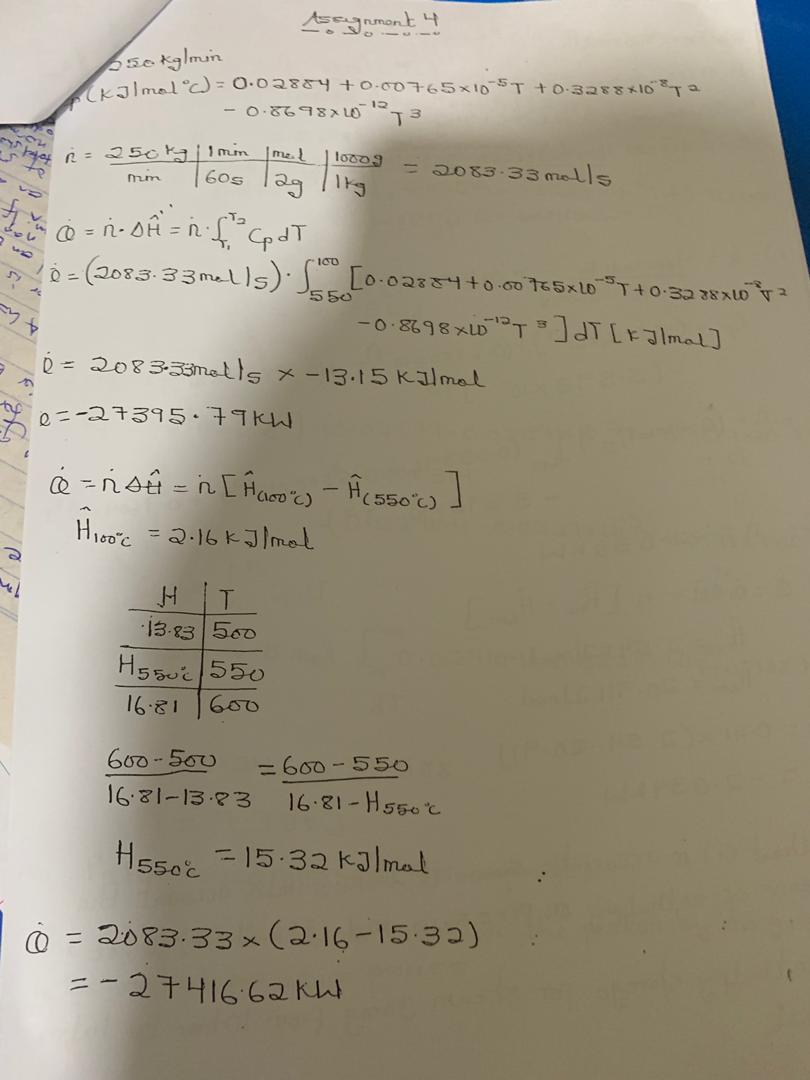 Assignment 4
250 kg/min
p(KJ/mol°C) = 0.02884 + 0.00765×10⁻⁵T + 0.3288×10⁻⁸T²
- 0.8698×10⁻¹²T³
ṅ = 250 kg | 1 min | mol | 1000g = 2083.33 mol/s
min | 60s | 2g | 1kg
Q̇ = ṅ·ΔĤ = ṅ·∫T₁^T₂ Cp dT
Q̇ = (2083.33 mol/s)·∫550^100 [0.02884 + 0.00765×10⁻⁵T + 0.3288×10⁻⁸T²
- 0.8698×10⁻¹²T³] dT [KJ/mol]
Q̇ = 2083.33 mol/s × -13.15 KJ/mol
Q = -27395.79 KW
Q̇ = ṅΔĤ = ṅ [Ĥ(100°C) - Ĥ(550°C)]
Ĥ100°C = 2.16 KJ/mol
H | T
13.83 | 500
H550°C | 550
16.81 | 600
600-500 = 600-550
16.81-13.83 16.81-H550°C
H550°C = 15.32 KJ/mol
Q̇ = 2083.33 × (2.16 - 15.32)
= -27416.62 KW